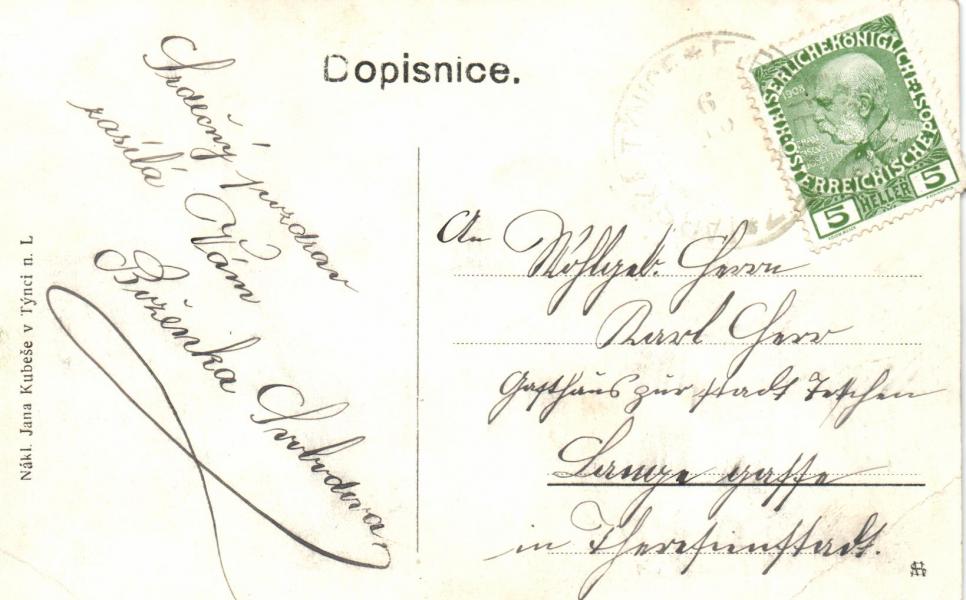 Dopisnice.
Srdečný pozdrav
zasílá Vám
Boženka Svobodova,
Nákl. Jana Kubeše v Týnci n. L
KAISERLICHE KÖNIGLICHE
ÖSTERREICHISCHE POST
1908
5 HELLER 5
An
Wohlgeb. Herrn
Karl Herr
Gasthaus zur stadt Tetschen
Lange gasse
in Theresienstadt.